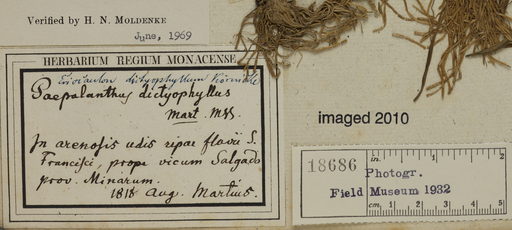 Verified by H. N. MOLDENKE
June, 1969
HERBARIUM REGIUM MONACENSE.
Eriocaulon dictyophyllum Körnicke
Paepalanthus dictyophyllus
Mart. MSS.
In arenosis udis ripae fluvii S.
Francisci, prope vicum Salgado
prov. Minarum.
1818 Aug. Martius.
imaged 2010
18686
Photogr.
Field Museum 1932
in. 1 2
cm 1 2 3 4 5